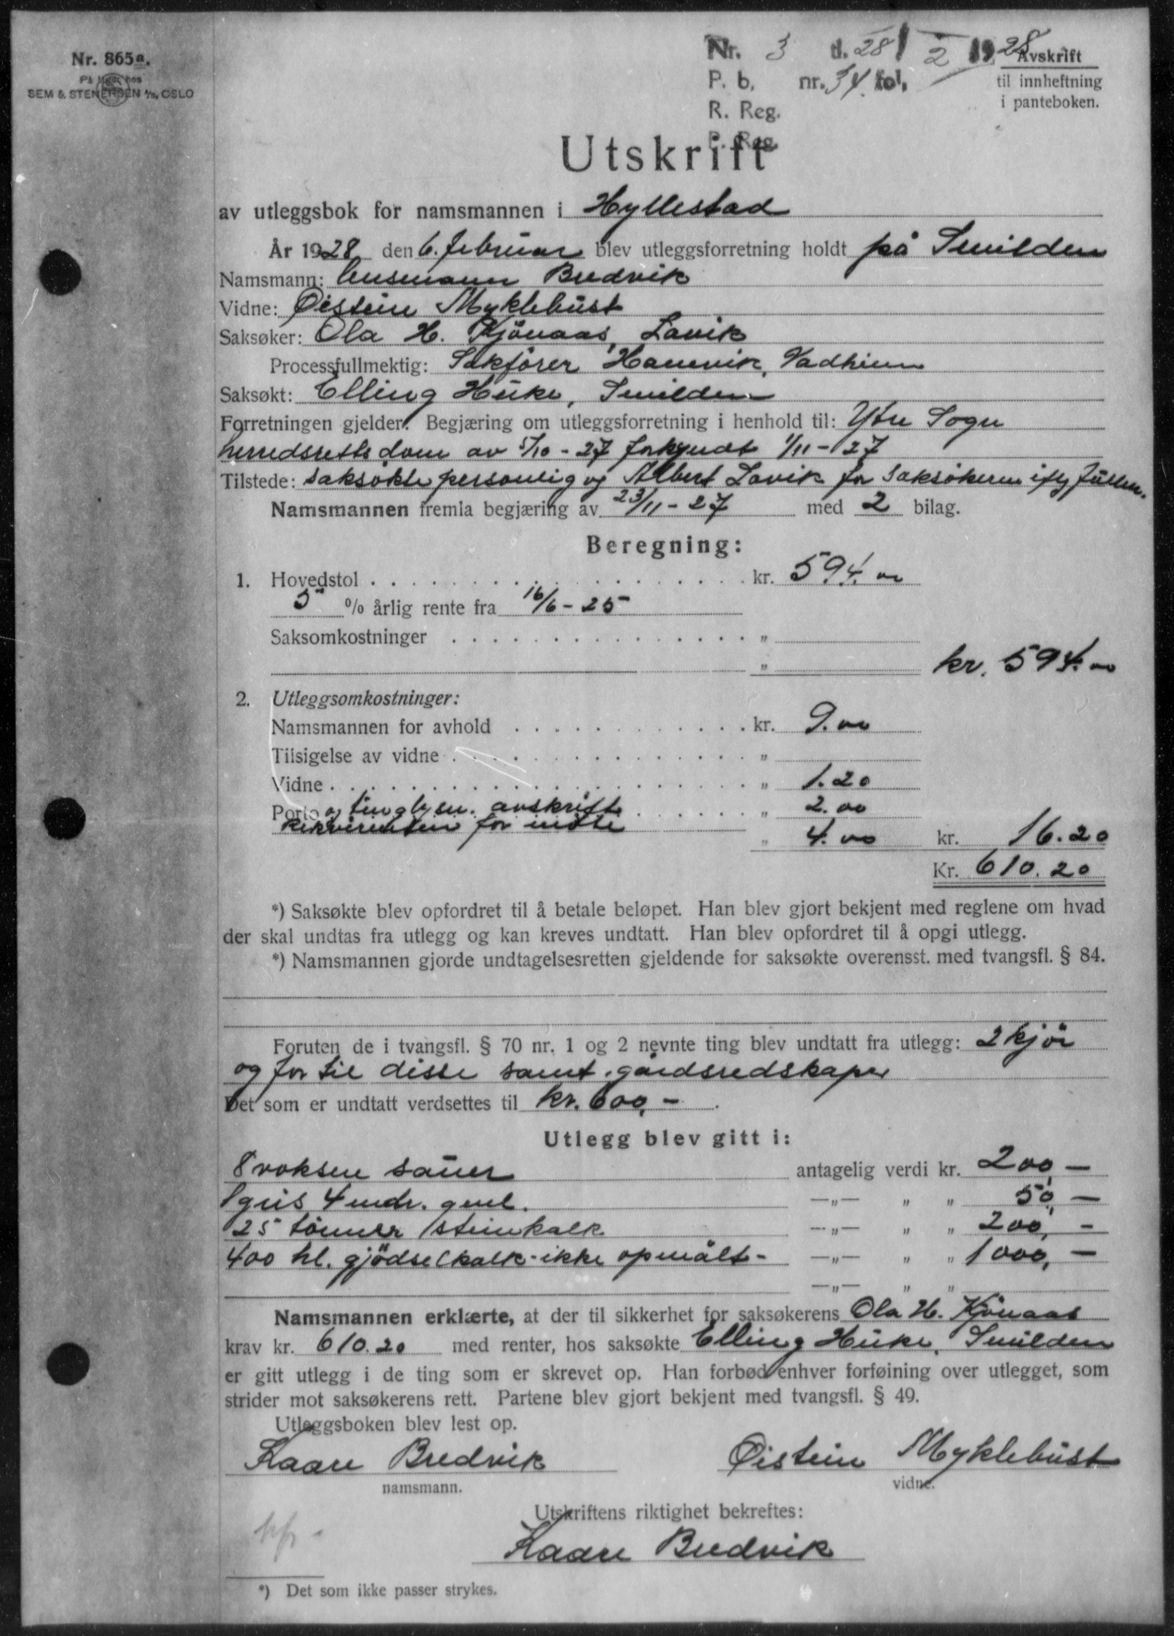 Nr. 865a.
På lager hos
SEM & STENERSEN A/s, OSLO
Nr. 3 d. 28/2 1928
P. b. nr. 34 fol.
R. Reg.
P. Reg.
Avskrift
til innheftning
i panteboken.
Utskrift
av utleggsbok for namsmannen i Hyllestad
År 1928 den 6. februar blev utleggsforretning holdt på Smilden
Namsmann: Bredvik
Vidne: Øistein Myklebust
Saksøker: Ola H. Kjönaas, Lavik
Processfullmektig: Sakfører Hamrevik, Vadheim
Saksøkt: Elling Huke, Smilden
Forretningen gjelder: Begjæring om utleggsforretning i henhold til: Ytre Sogn
herredsretts dom av 5/10 - 27 forkynt 1/11 - 27
Tilstede: saksøkte personlig og Albert Lavik for saksøkeren ifg fullm.
Namsmannen fremla begjæring av 23/11 - 27 med 2 bilag.
Beregning:
1. Hovedstol . . . . . kr. 594.00
5 % årlig rente fra 16/6 - 25
Saksomkostninger . . . . . "
" kr. 594.00
2. Utleggsomkostninger:
Namsmannen for avhold . . . . . kr. 9.00
Tilsigelse av vidne . . . . . "
Vidne . . . . . " 1.20
Porto og tinglysn. avskrift . . . . . " 2.00
rekvirenten for møte " 4.00 kr. 16.20
Kr. 610.20
*) Saksøkte blev opfordret til å betale beløpet. Han blev gjort bekjent med reglene om hvad
der skal undtas fra utlegg og kan kreves undtatt. Han blev opfordret til å opgi utlegg.
*) Namsmannen gjorde undtagelsesretten gjeldende for saksøkte overensst. med tvangsfl. § 84.
Foruten de i tvangsfl. § 70 nr. 1 og 2 nevnte ting blev undtatt fra utlegg: 2 kjör
og for til disse samt gårdsredskaper
Det som er undtatt verdsettes til kr. 600,-.
Utlegg blev gitt i:
8 voksne sauer antagelig verdi kr. 200,-
1 gris 4 mdr. gml. —„— " " 50,-
25 tönner steinkalk —„— " " 200,-
400 hl. gjödselkalk - ikke opmålt - —„— " " 1000,-
—„— " "
Namsmannen erklærte, at der til sikkerhet for saksøkerens Ola H. Kjönaas
krav kr. 610.20 med renter, hos saksøkte Elling Huke, Smilden
er gitt utlegg i de ting som er skrevet op. Han forbød enhver forføining over utlegget, som
strider mot saksøkerens rett. Partene blev gjort bekjent med tvangsfl. § 49.
Utleggsboken blev lest op.
Kaare Bredvik Øistein Myklebust
namsmann. vidne.
Utskriftens riktighet bekreftes:
Kaare Bredvik
*) Det som ikke passer strykes.